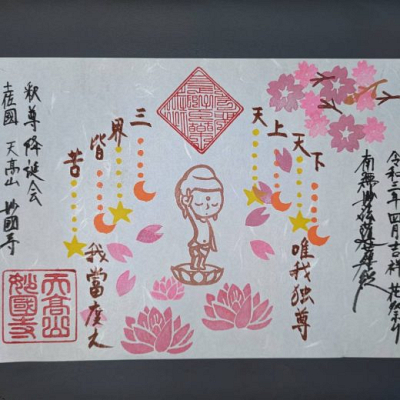 令和三年四月吉祥
南無妙法蓮華経
天上天下
唯我独尊
三界皆苦
我當度之
釈尊降誕会
土佐國 天高山 妙國寺
天高山
妙國寺